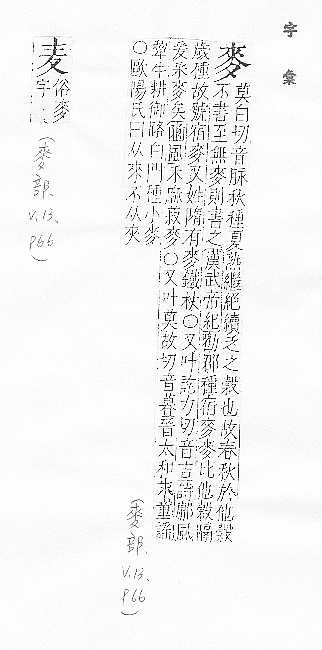 字彙
麥 莫白切音脉秋種夏熟繼絕續乏之穀也故春秋於他穀
不書至無麥則書之漢武帝紀勸郡種宿麥麥比他穀隔
歲種故號宿麥又姓隋有麥鐵杖○又叶訖力切音吉詩鄘風
爰采麥矣豳風禾麻菽麥○又叶莫故切音暮晉太和末童謠
犂牛耕御路白門種小麥
○歐陽氏曰从來不从夾
(麥部, V.13, P66)
麦 俗麥
字
(麥部, V.13, P66)